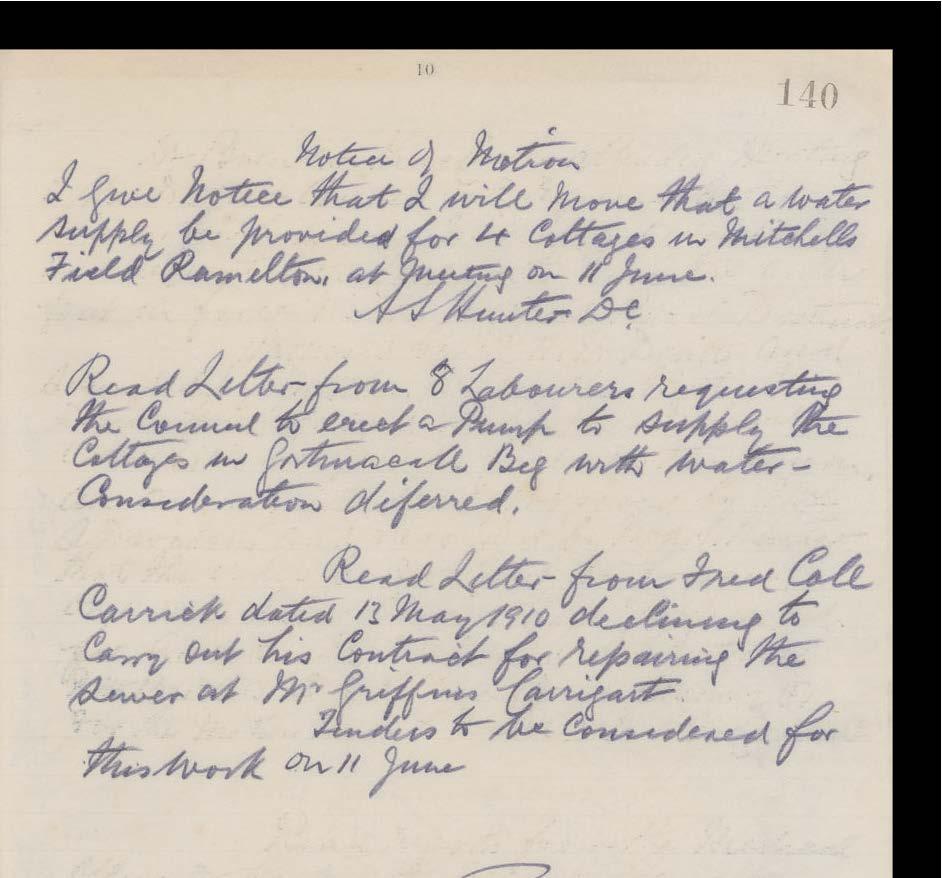 10
140
Notice of Motion
I give Notice that I will move that a water
supply be provided for 4 Cottages in Mitchells
Field Ramelton, at meeting on 11 June.
A S Hunter DC
Read Letter from 8 Labourers requesting
the Council to erect a Pump to supply the
Cottages in Beg with water -
Consideration diferred.
Read Letter from Fred Coll
Carrick dated 13 May 1910 declining to
Carry out his Contract for repairing the
sewer at Mr Griffins Carrigart
Tenders to be Considered for
this work on 11 June